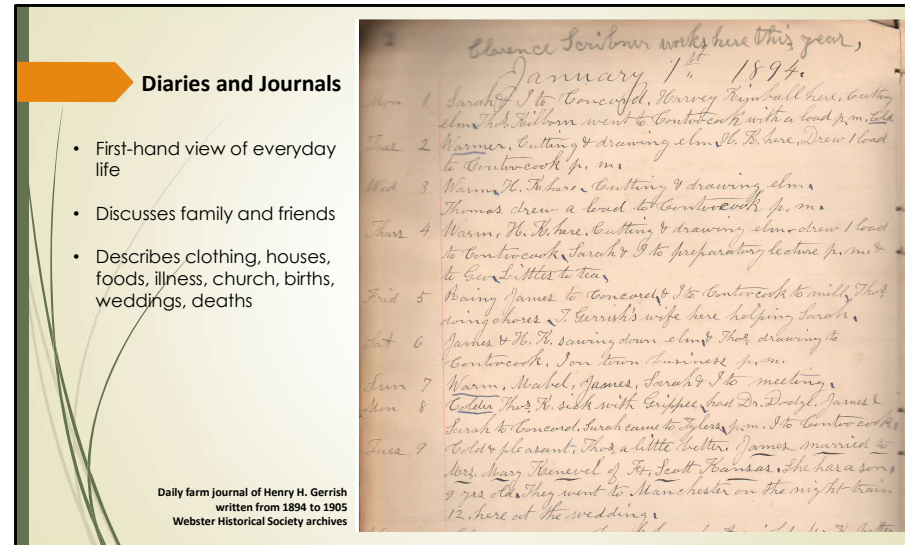 Diaries and Journals
• First-hand view of everyday
life
• Discusses family and friends
• Describes clothing, houses,
foods, illness, church, births,
weddings, deaths
Daily farm journal of Henry H. Gerrish
written from 1894 to 1905
Webster Historical Society archives
Clarence Scribner works here this year,
January 1st 1894.
Mon 1 Sarah & I to Concord. Harvey Kimball here. Cutting
elm. Thos. Kilborn went to Contoocook with a load p.m. Cold
Tues 2 Warmer. Cutting & drawing elm. H. K. here. Drew 1 load
to Contoocook p. m.
Wed 3 Warm. H. K. here. Cutting & drawing elm.
Thomas drew a load to Contoocook p. m.
Thurs 4 Warm, H. K. here. Cutting & drawing elm. drew 1 load
to Contoocook. Sarah & I to preparatory lecture p. m. &
to Geo. Little's to tea.
Frid 5 Rainy James to Concord, & I to Contoocook to mill, Thos.
doing chores. J. Gerrish's wife here helping Sarah.
Sat 6 James & H. K. sawing down elm & Thos. drawing to
Contoocook. I on town business p. m.
Sun 7 Warm. Mabel, James, Sarah & I to meeting.
Mon 8 Colder Thos. K. sick with Grippee, had Dr. Dodge. James &
Sarah to Concord. Sarah came to Tylers p.m. I to Contoocook.
Tues 9 Cold & pleasant. Thos. a little better. James married to
Mrs. Mary of Ft. Scott Kansas. She has a son,
9 yrs old. They went to Manchester on the night train
12, here at the wedding.